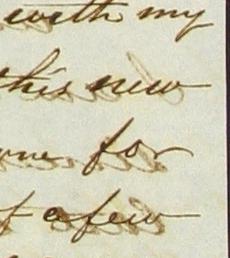 with my
this new
for
of a few